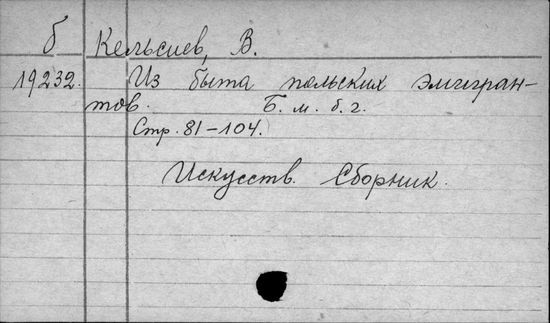 б Кельсиев, В.
19232. Из быта польских эмигран-
тов. Б. м. б. г.
Стр. 81-104.
Искусств. Сборник.